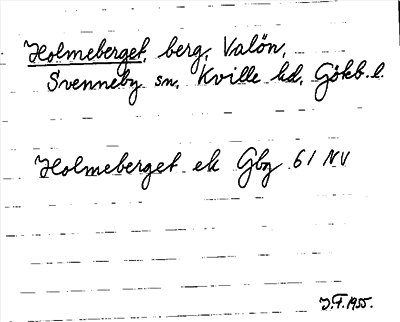 Holmeberget, berg, Valön,
Svenneby sn, Kville hd, Götib. l.
Holmeberget ek Gbg 61 NV
J.F. 1955.